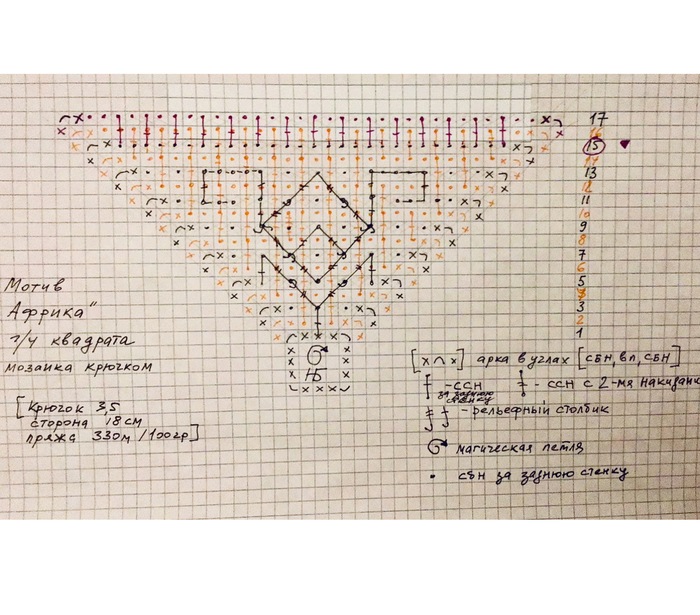 17
16
15
14
13
12
11
10
9
8
7
6
5
4
3
2
1
Мотив
Африка"
1/4 квадрата
мозаика крючком
[Крючок 3,5
сторона 18 см
пряжа 330м/100гр]
НБ
[х∩х] арка в углах [сбн, вп, сбн]
- ССН
за заднюю
стенку
- ссн с 2-мя накидами
- рельефный столбик
магическая петля
• сбн за заднюю стенку